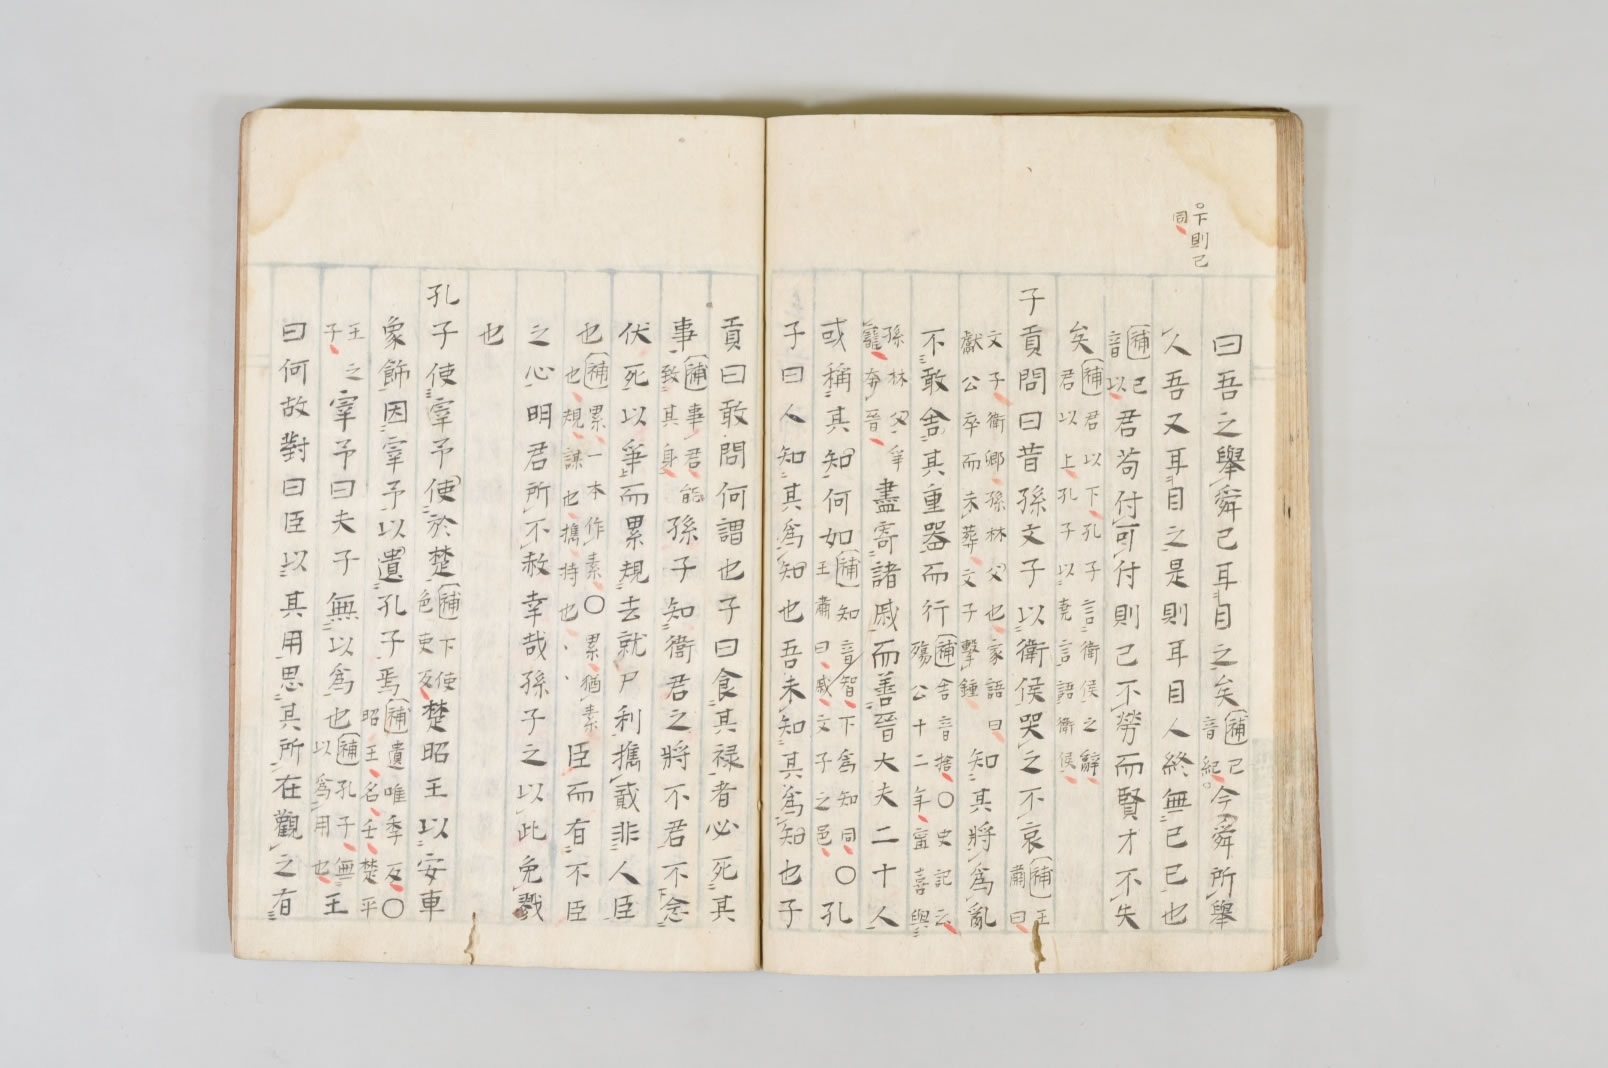 下則己
同
曰吾之舉舜已耳目之矣補己音紀今舜所舉
人吾又耳目之是則耳目人終無已已也
補已音以君苟付可付則己不勞而賢才不失
矣補君以下孔子言衛侯之辭君以上孔子以堯言語衛侯
子貢問曰昔孫文子以衛侯哭之不哀補王肅曰
文子衛卿孫林父也家語曰獻公卒而未葬文子擊鍾知其將為亂
不敢舍其重器而行補舍音捨〇史記云殤公十二年甯喜與
孫林父爭寵奔晉盡寄諸戚而善晉大夫二十人
或稱其知何如補知音智下為知同〇孔王肅曰戚文子之邑
子曰人知其為知也吾未知其為知也子
貢曰敢問何謂也子曰食其禄者必死其
事補事君能致其身孫子知衛君之將不君不念
伏死以爭而累規去就尸利攜貳非人臣
也補累一本作素〇累猶素也規謀也攜持也臣而有不臣
之心明君所不赦幸哉孫子之以此免戮
也
孔子使宰予使於楚補下使色吏反楚昭王以安車
象飾因宰予以遺孔子焉補遺唯季反〇昭王名壬楚平
王之子宰予曰夫子無以為也補孔子無以為用也王
曰何故對曰臣以其用思其所在觀之有